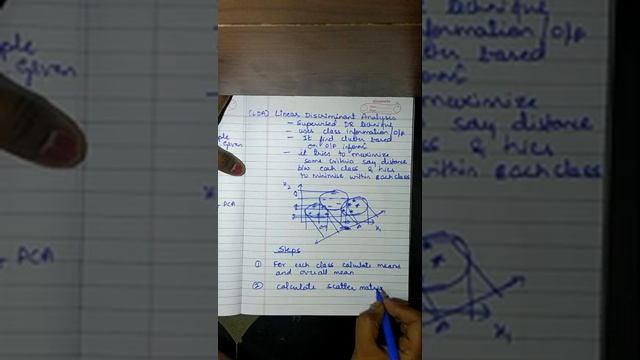 (LDA) Linear Discriminant Analysis
- Supervised DR technique
- uses class information O/P
- It find cluster based
on O/P inform
- it tries to maximize
some criteria say distance
b/w each class & tries
to minimise within each class
x2
x1
Steps
① For each class calculate means
and overall mean
② Calculate scatter matrix
given
PCA
technique
information O/P
based
maximize
say distance
& tries
within each class
x1